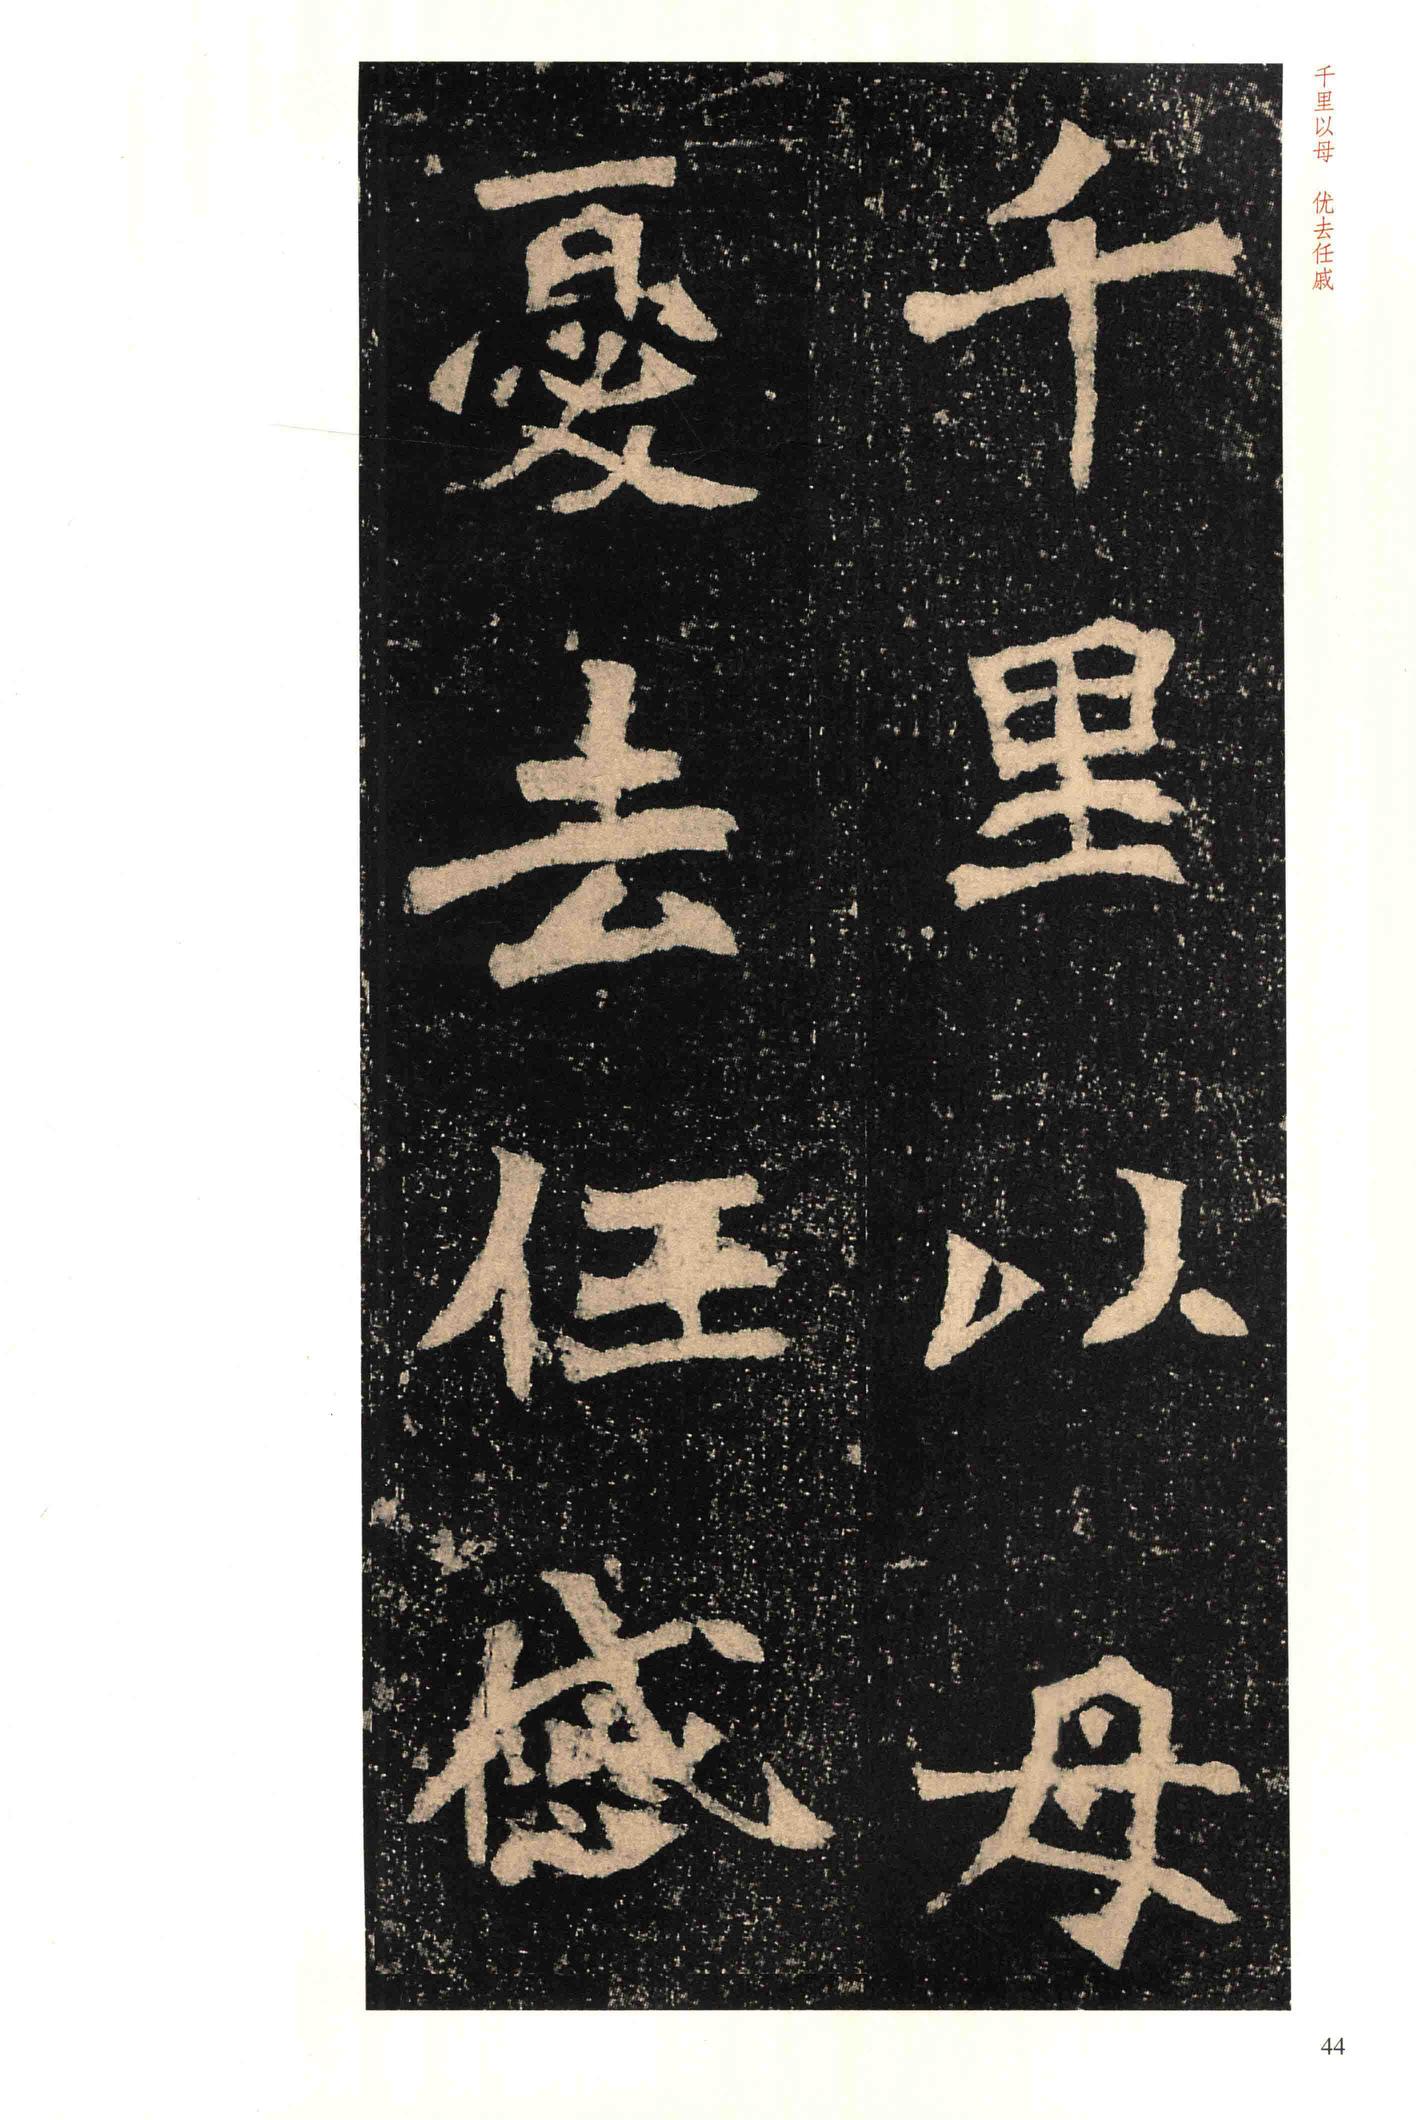 千里以母　优去任戚
千里以母
憂去任慼
44